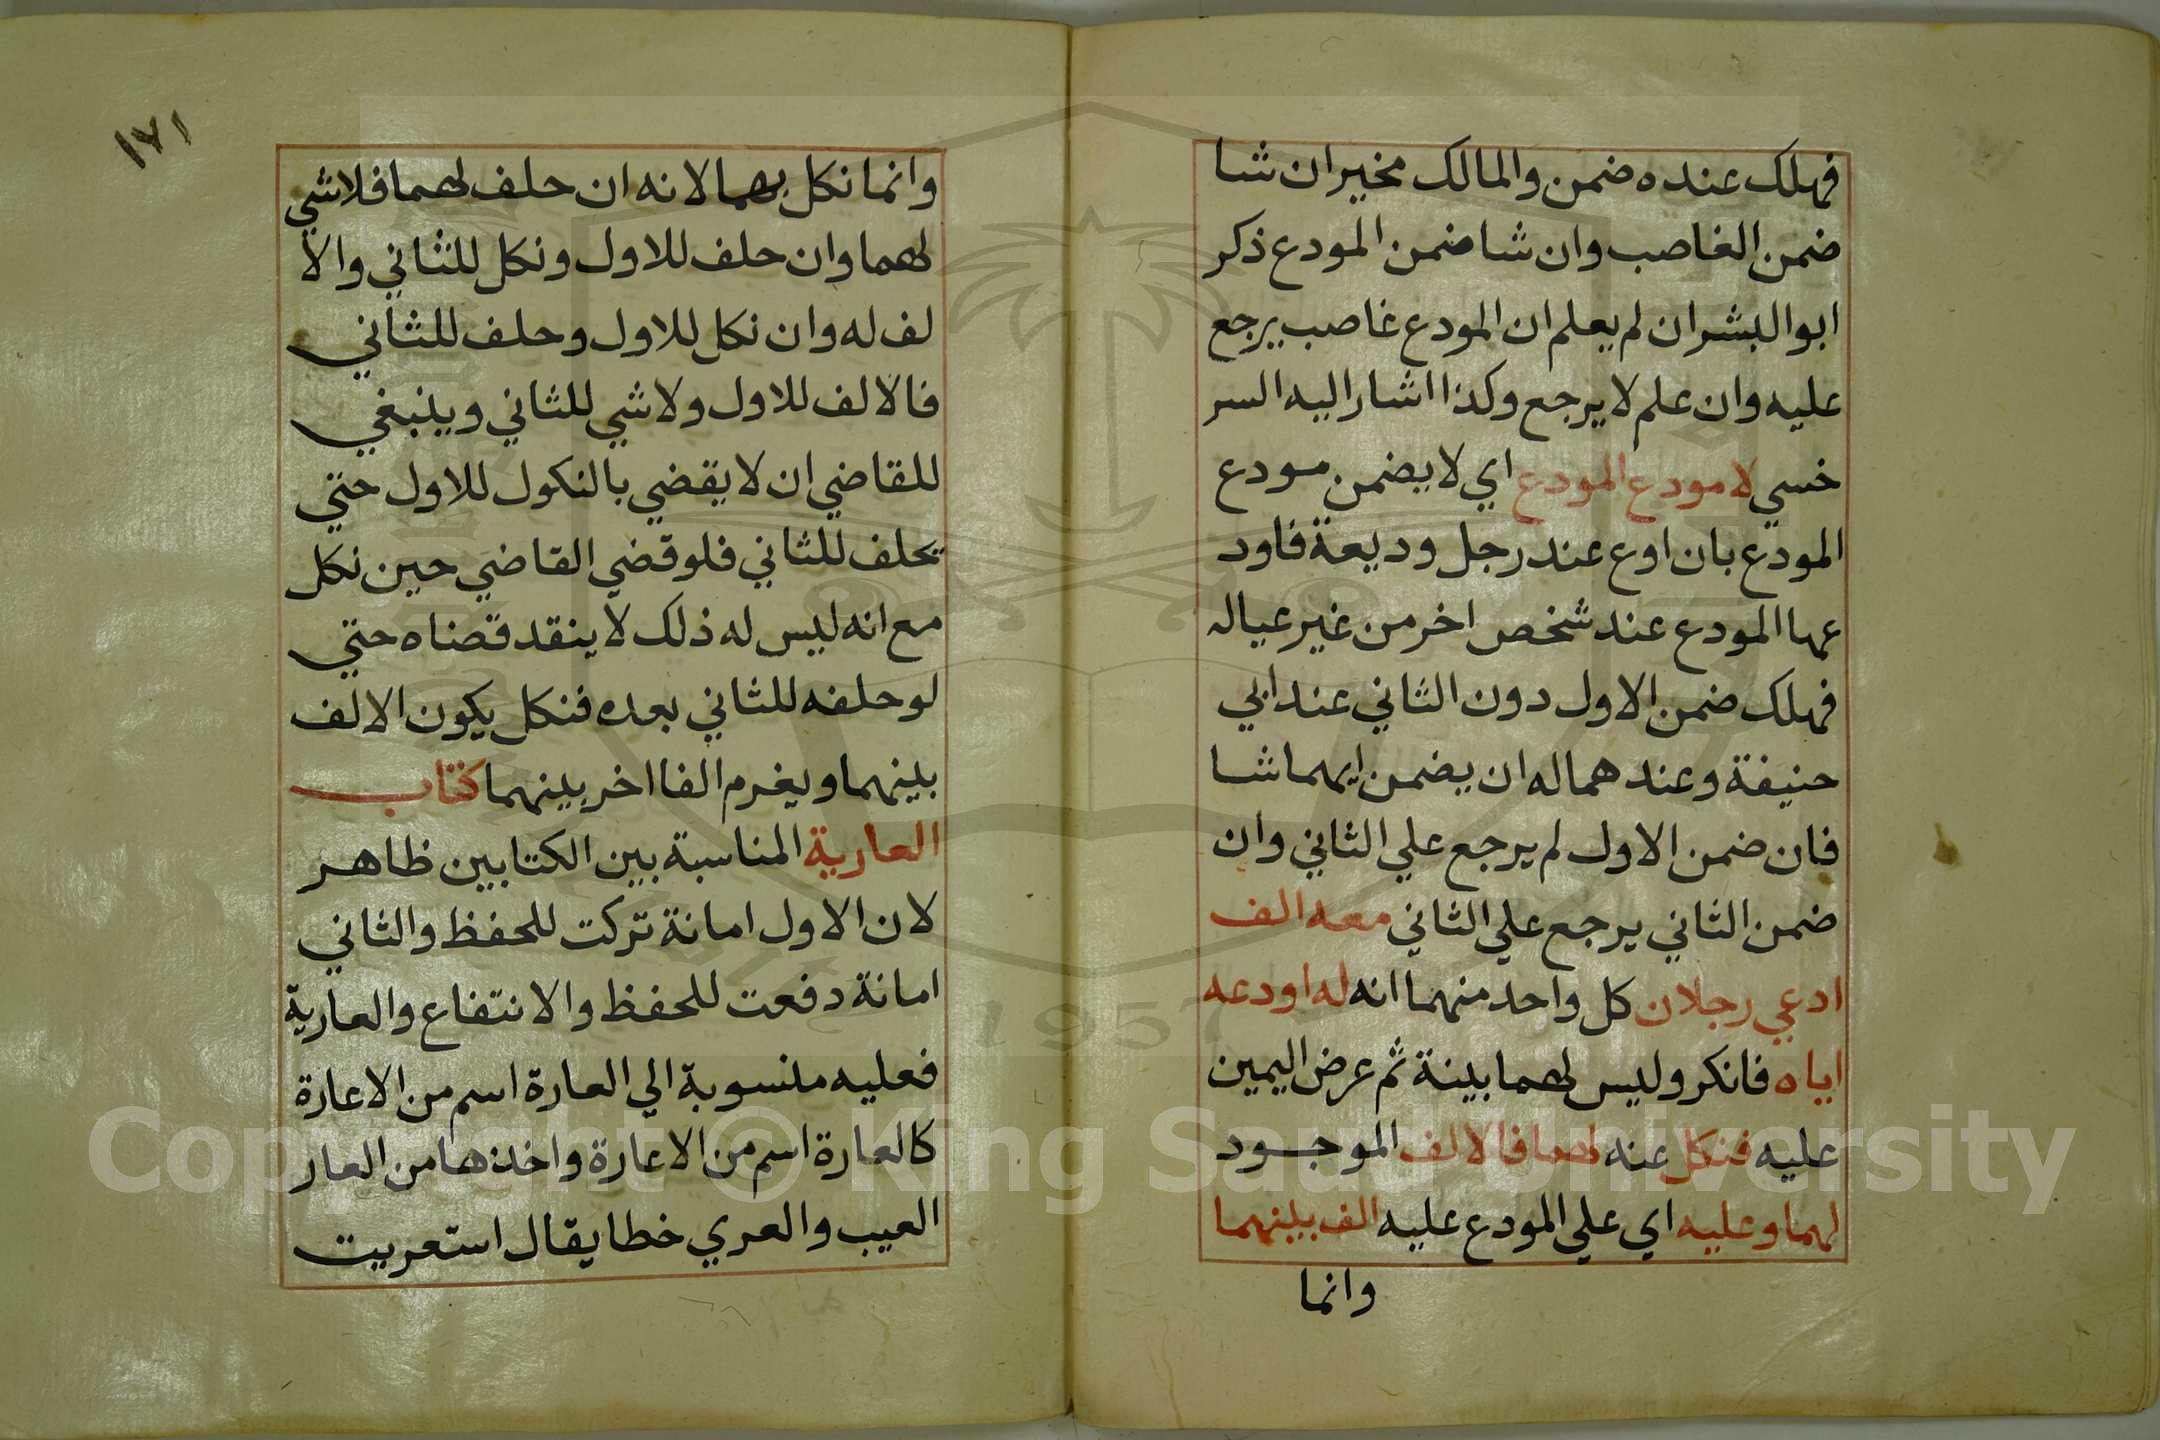 فهلك عنده ضمن والمالك مخير ان شا
ضمن الغاصب وان شا ضمن المودع ذكر
ابو البشر ان لم يعلم ان المودع غاصب يرجع
عليه وان علم لا يرجع وكذا اشار اليه السر
خسي لا مودع المودع اي لا يضمن مودع
المودع بان اوع عند رجل وديعة فاود
عها المودع عند شخص اخر من غير عياله
فهلك ضمن الاول دون الثاني عند ابي
حنيفة وعند هما له ان يضمن ايهما شا
فان ضمن الاول لم يرجع علي الثاني وان
ضمن الثاني يرجع علي الثاني معه الف
ادعي رجلان كل واحد منهما انه له اودعه
اياه فانكر وليس لهما بينة ثم عرض اليمين
عليه فنكل عنه لهما فالالف الموجود
لهما وعليه اي علي المودع عليه الف بينهما
وانما
١٧١
وانما نكل بهما لانه ان حلف لهما فلا شي
لهما وان حلف للاول ونكل للثاني والا
لف له وان نكل للاول وحلف للثاني
فالالف للاول ولا شي للثاني وينبغي
للقاضي ان لا يقضي بالنكول للاول حتي
تحلف للثاني فلو قضي القاضي حين نكل
مع انه ليس له ذلك لا ينقد قضاه حتي
لو حلفه للثاني بعده فنكل يكون الالف
بينهما ويغرم الفا اخر بينهما كتاب
العارية المناسبة بين الكتابين ظاهر
لان الاول امانة تركت للحفظ والثاني
امانة دفعت للحفظ والانتفاع والعارية
فعليه منسوبة الي العارة اسم من الاعارة
كالعارة اسم من الاعارة واخذها من العار
العيب والعري خطا يقال استعريت
Copyright © King Saud University
1957